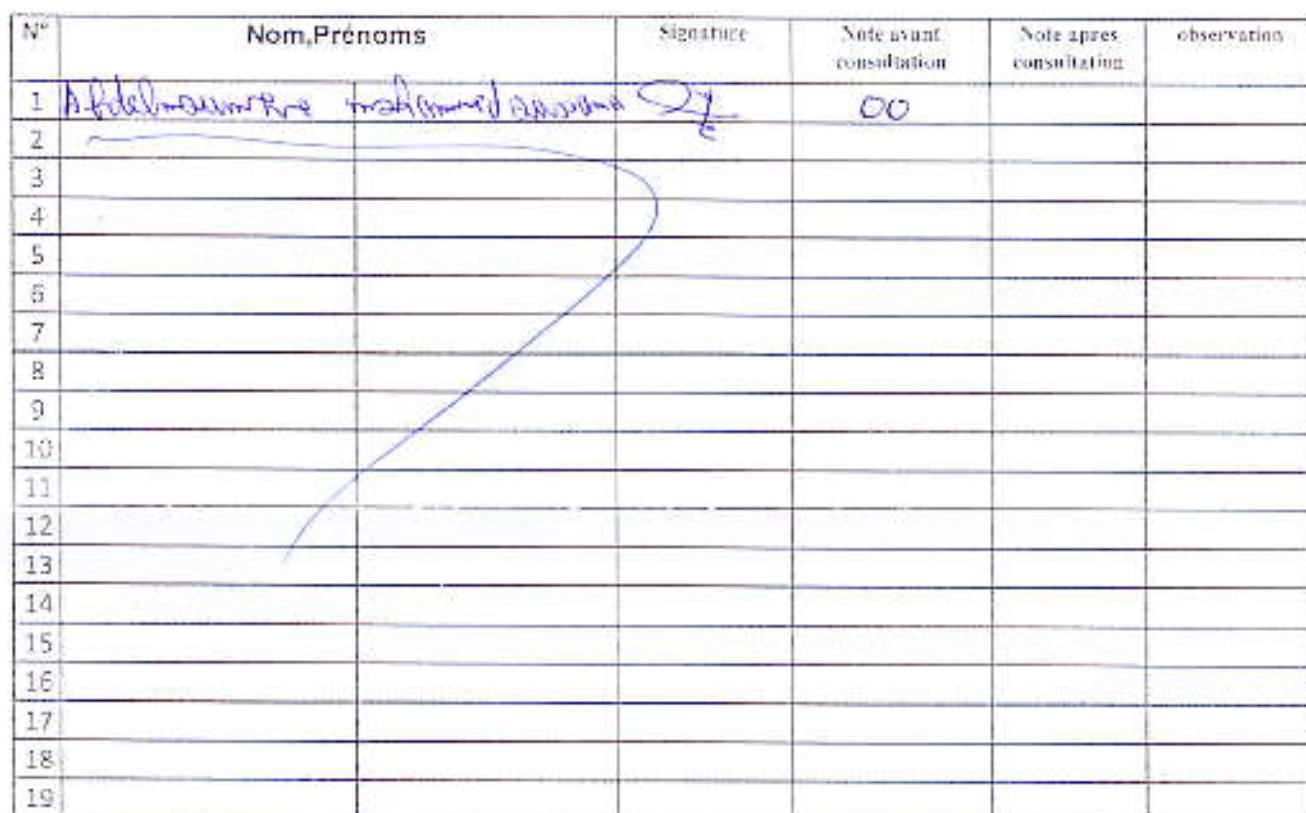 N° Nom,Prénoms Signature Note avant consultation Note apres consultation observation
1 00
2
3
4
5
6
7
8
9
10
11
12
13
14
15
16
17
18
19